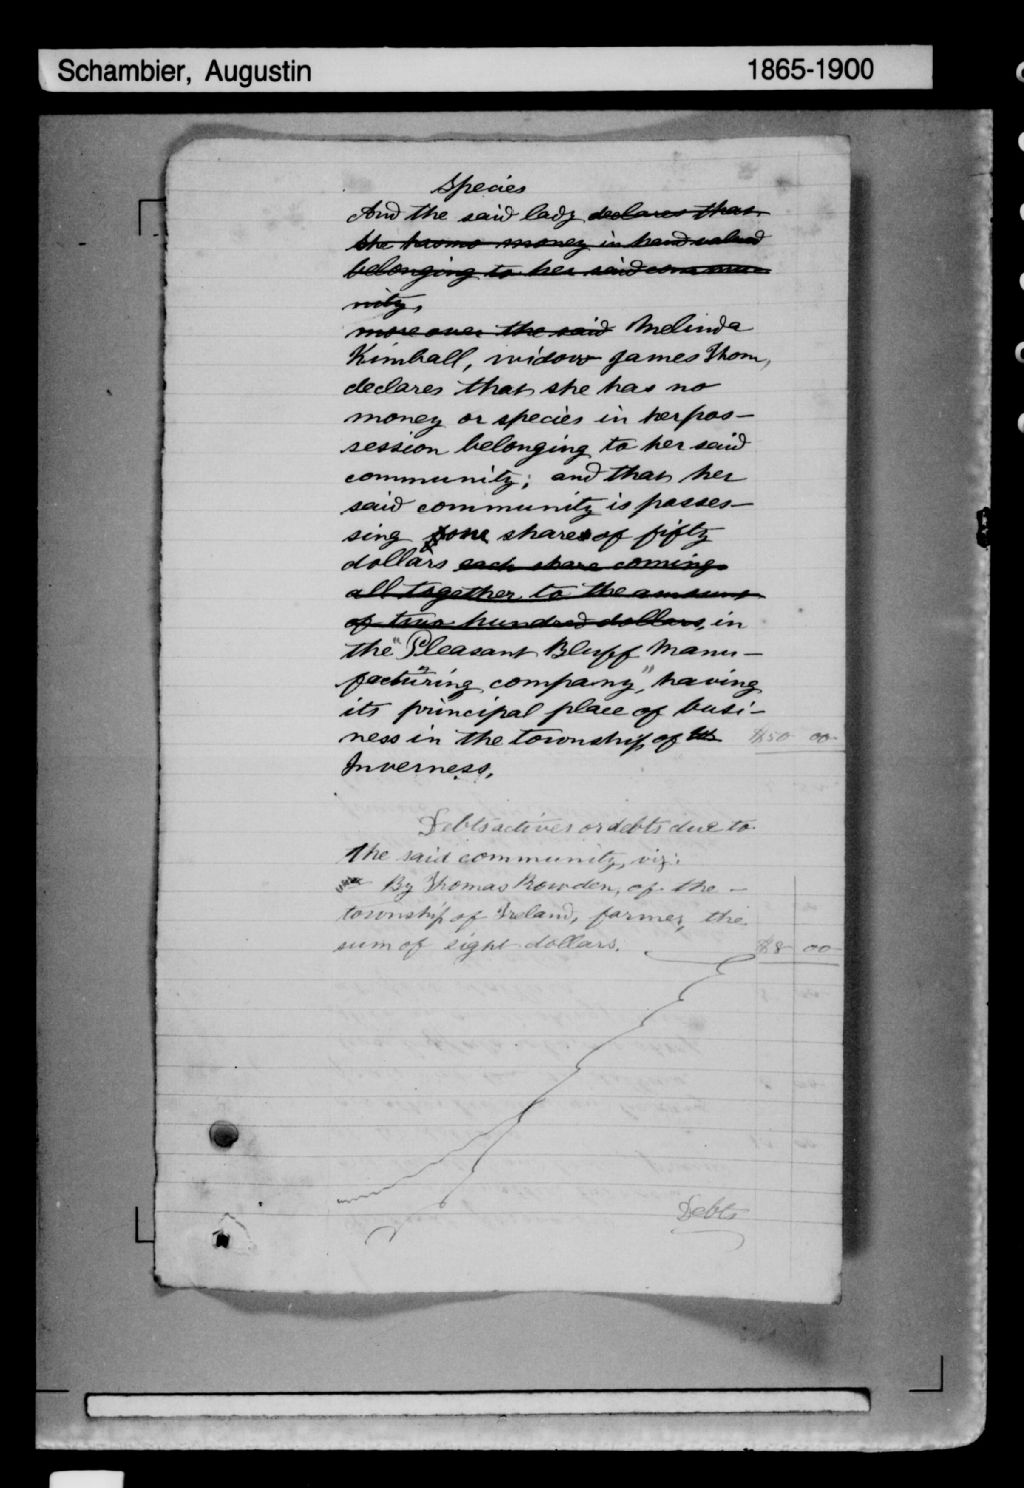 Schambier, Augustin 1865-1900
Species
And the said lady declares that
she has no money in hand
belonging to her said commu-
nity,
moreover the said Melinda
Kimball, widow James Thom,
declares that she has no
money or species in her pos-
session belonging to her said
community; and that her
said community is posses-
sing one share of fifty
dollars each share coming
all together to the amount
of two hundred dollars, in
the "Pleasant Bluff Manu-
facturing company," having
its principal place of busi-
ness in the township of $50 00
Inverness.
Debts actives or debts due to
the said community, viz:
By Thomas Bowden, of the
township of Ireland, farmer, the
sum of eight dollars. $8 00
Debts